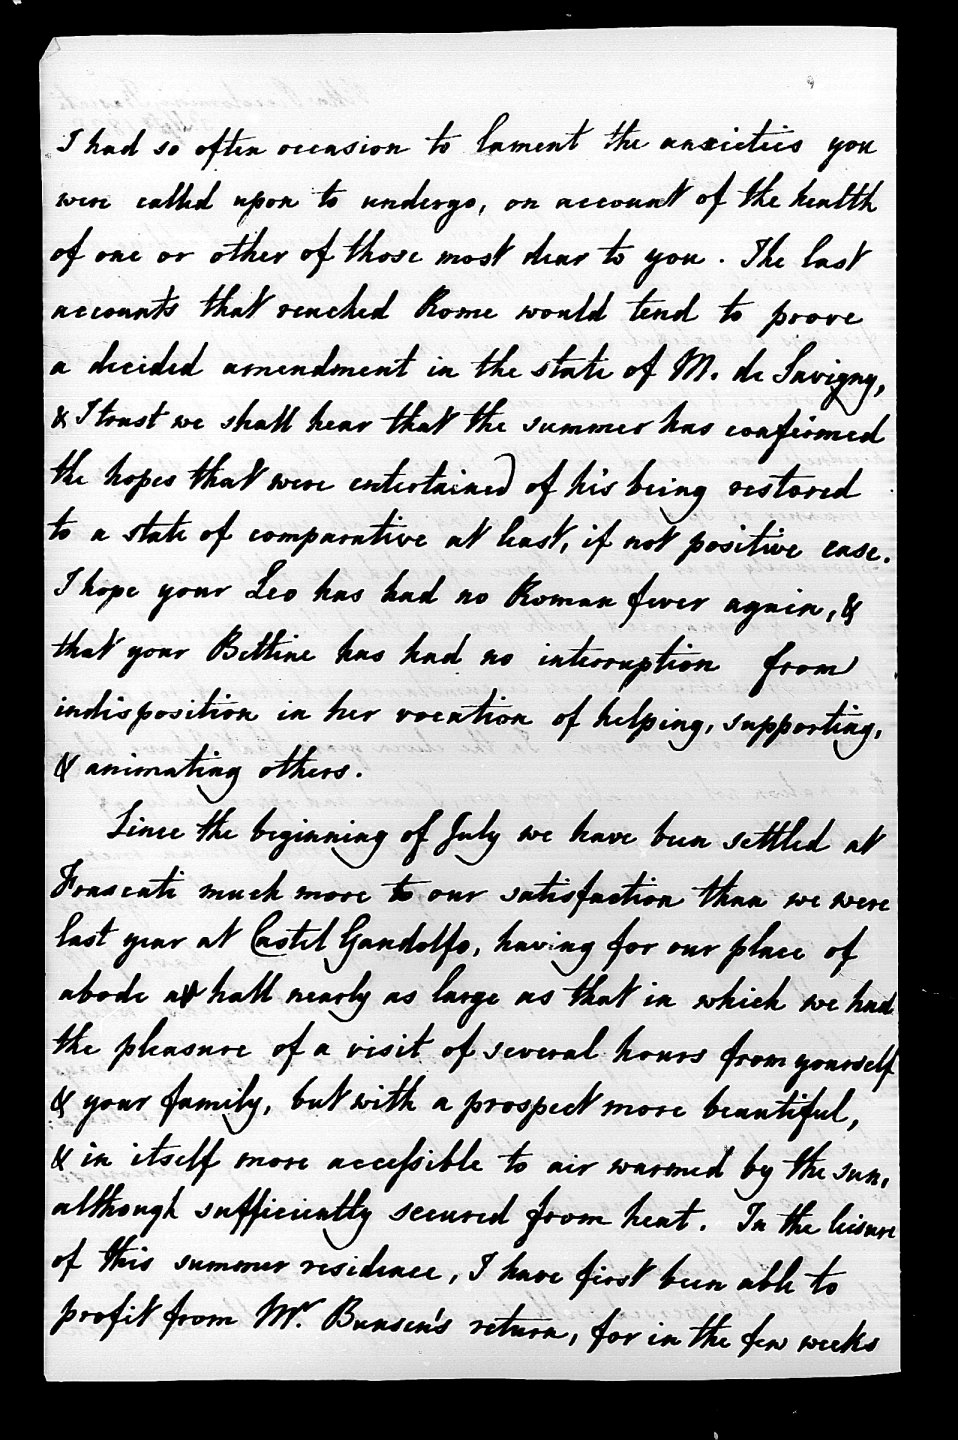 I had so often occasion to lament the anxieties you
were called upon to undergo, on account of the health
of one or other of those most dear to you. The last
accounts that reached Rome would tend to prove
a decided amendment in the state of M. de Savigny,
& I trust we shall hear that the summer has confirmed
the hopes that were entertained of his being restored
to a state of comparative at least, if not positive ease.
I hope your Leo has had no Roman fever again, &
that your Bettine has had no interruption from
indisposition in her vocation of helping, supporting,
& animating others.
Since the beginning of July we have been settled at
Frascati much more to our satisfaction than we were
last year at Castel Gandolfo, having for our place of
abode a hall nearly as large as that in which we had
the pleasure of a visit of several hours from yourself
& your family, but with a prospect more beautiful,
& in itself more accessible to air warmed by the sun,
although sufficiently secured from heat. In the leisure
of this summer residence, I have first been able to
profit from Mr. Bunsen's return, for in the few weeks